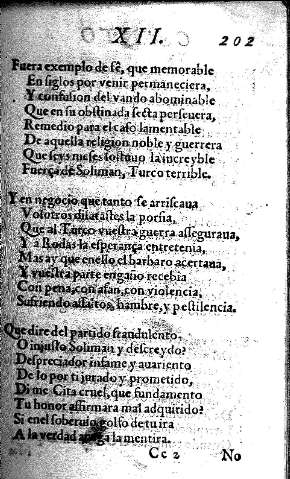 XII. 202
Fuera exemplo de fé, que memorable
En siglos por venir permaneciera,
Y confusion del vando abominable
Que en su obstinada secta perseuera,
Remedio para el caso lamentable
De aquella religion noble y guerrera
Que seys meses sostuuo la increyble
Fuerça de Soliman, Turco terrible.
Y en negocio que tanto se arriscaua
Vosotros dilatastes la porfia,
Que al Turco vuestra guerra asseguraua,
Y a Rodas la esperança entretenia,
Mas ay que en ello el barbaro acertaua,
Y vuestra parte engaño recebia
Con pena, con afan, con violencia,
Sufriendo assaltos, hambre, y pestilencia.
Que dire del partido fraudulento,
O injusto Soliman y descreydo?
Despreciador infame y auariento
De lo por ti jurado y prometido,
Di me Cita cruel, que fundamento
Tu honor affirmara mal adquirido?
Si en el soberuio golfo de tu ira
A la verdad la mentira.
Cc 2 No